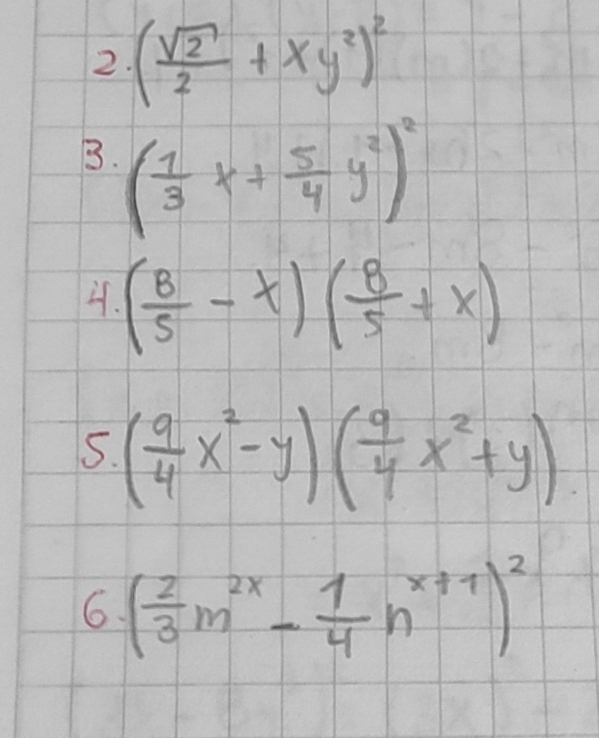 2. (√2/2 + xy²)²
3. (1/3 x + 5/4 y²)²
4. (8/5 - x) (8/5 + x)
5. (9/4 x² - y) (9/4 x² + y)
6. (2/3 m^{2x} - 1/4 n^{x+1})²